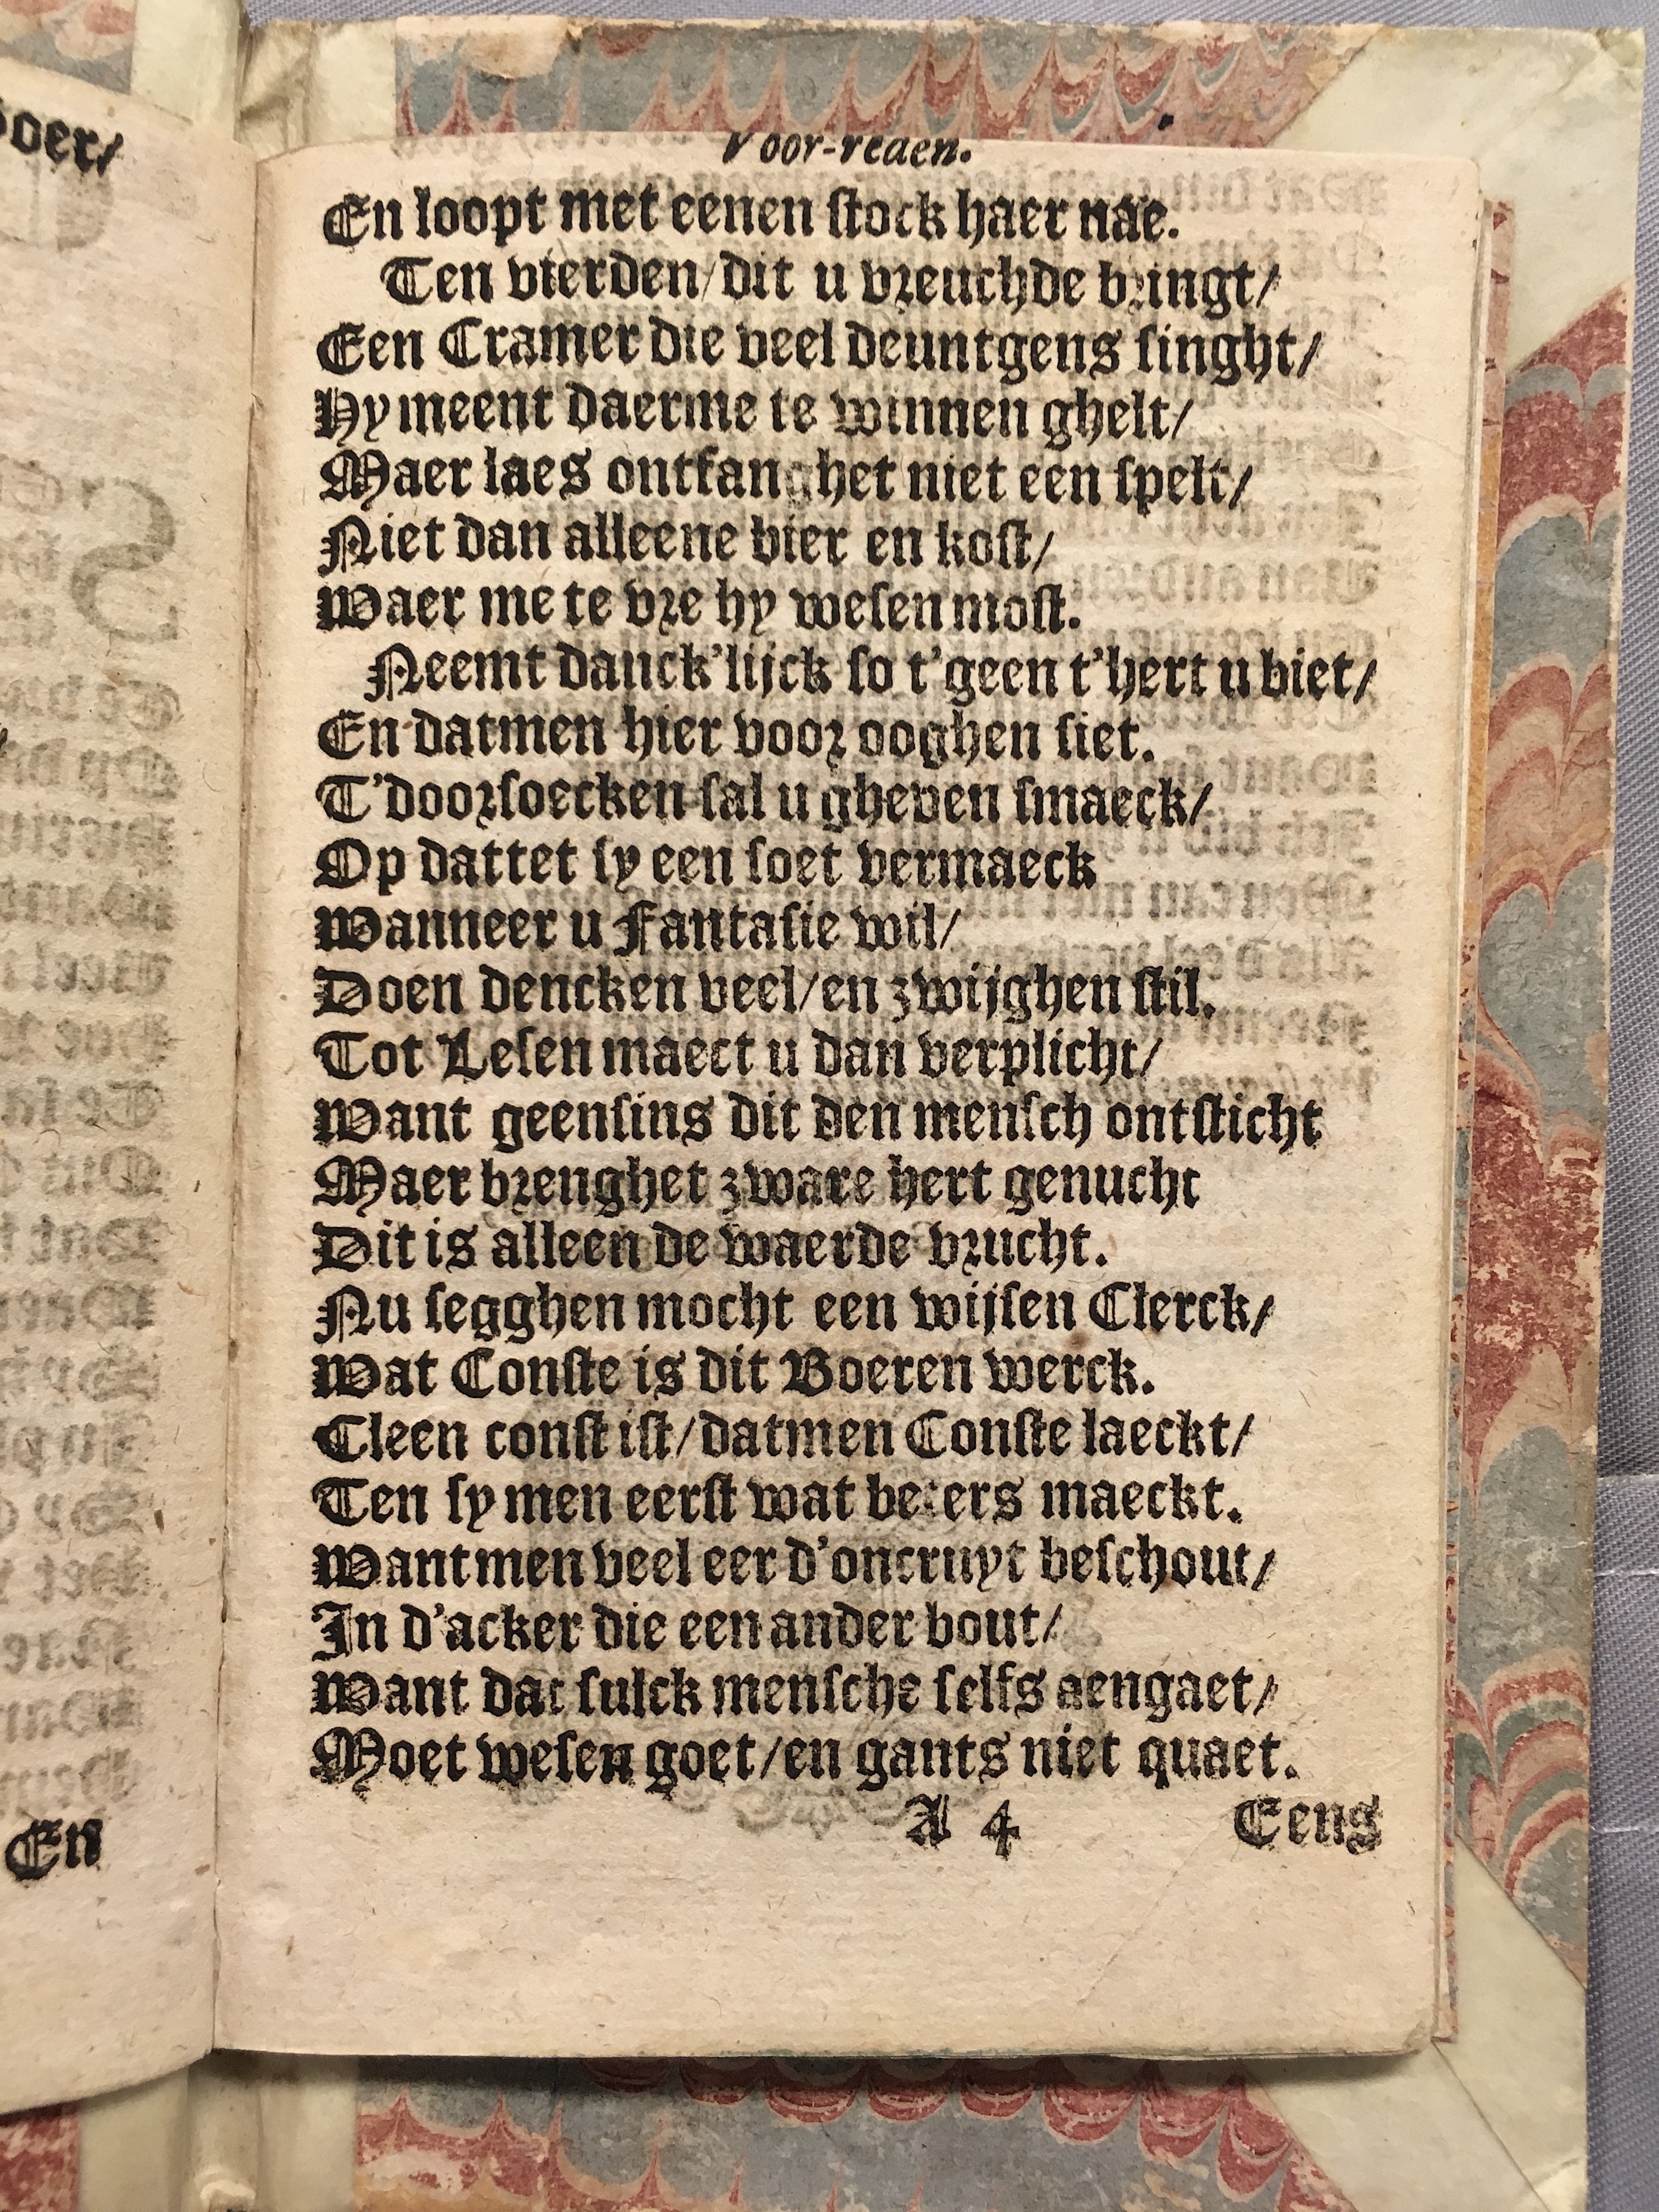 Voor-reden.
En loopt met eenen stock haer nae.
Ten vierden/dit u vreuchde bringt/
Een Cramer die veel deuntgens singht/
Hy meent daerme te winnen ghelt/
Maer laes ontfanghet niet een spelt/
Niet dan alleene bier en kost/
Waer me te vre hy wesen most.
Neemt danck'lijck so t'geen t'hert u biet/
En datmen hier voor ooghen siet.
T'doorsoecken sal u gheven smaeck/
Op dattet sy een soet vermaeck
Wanneer u Fantasie wil/
Doen dencken veel/en zwijghen stil.
Tot Lesen maect u dan verplicht/
Want geensins dit den mensch ontsticht
Maer brenghet zware hert genucht
Dit is alleen de waerde vrucht.
Nu segghen mocht een wijsen Clerck/
Wat Conste is dit Boeren werck.
Cleen const ist/datmen Conste laeckt/
Ten sy men eerst wat beters maeckt.
Want men veel eer d'oncruyt beschout/
In d'acker die een ander bout/
Want dat sulck mensche selfs aengaet/
Moet wesen goet/en gants niet quaet.
A 4 Eens
En